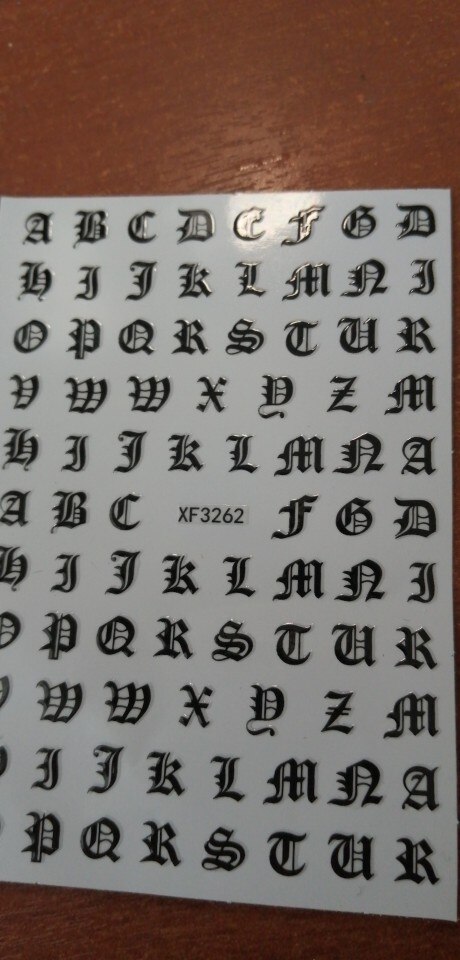 A B C D E F G D
H I J K L M N I
O P Q R S T U R
V W W X Y Z M
H I J K L M N A
A B C XF3262 F G D
H I J K L M N I
O P Q R S T U R
W W X Y Z M
I J K L M N A
P Q R S T U R